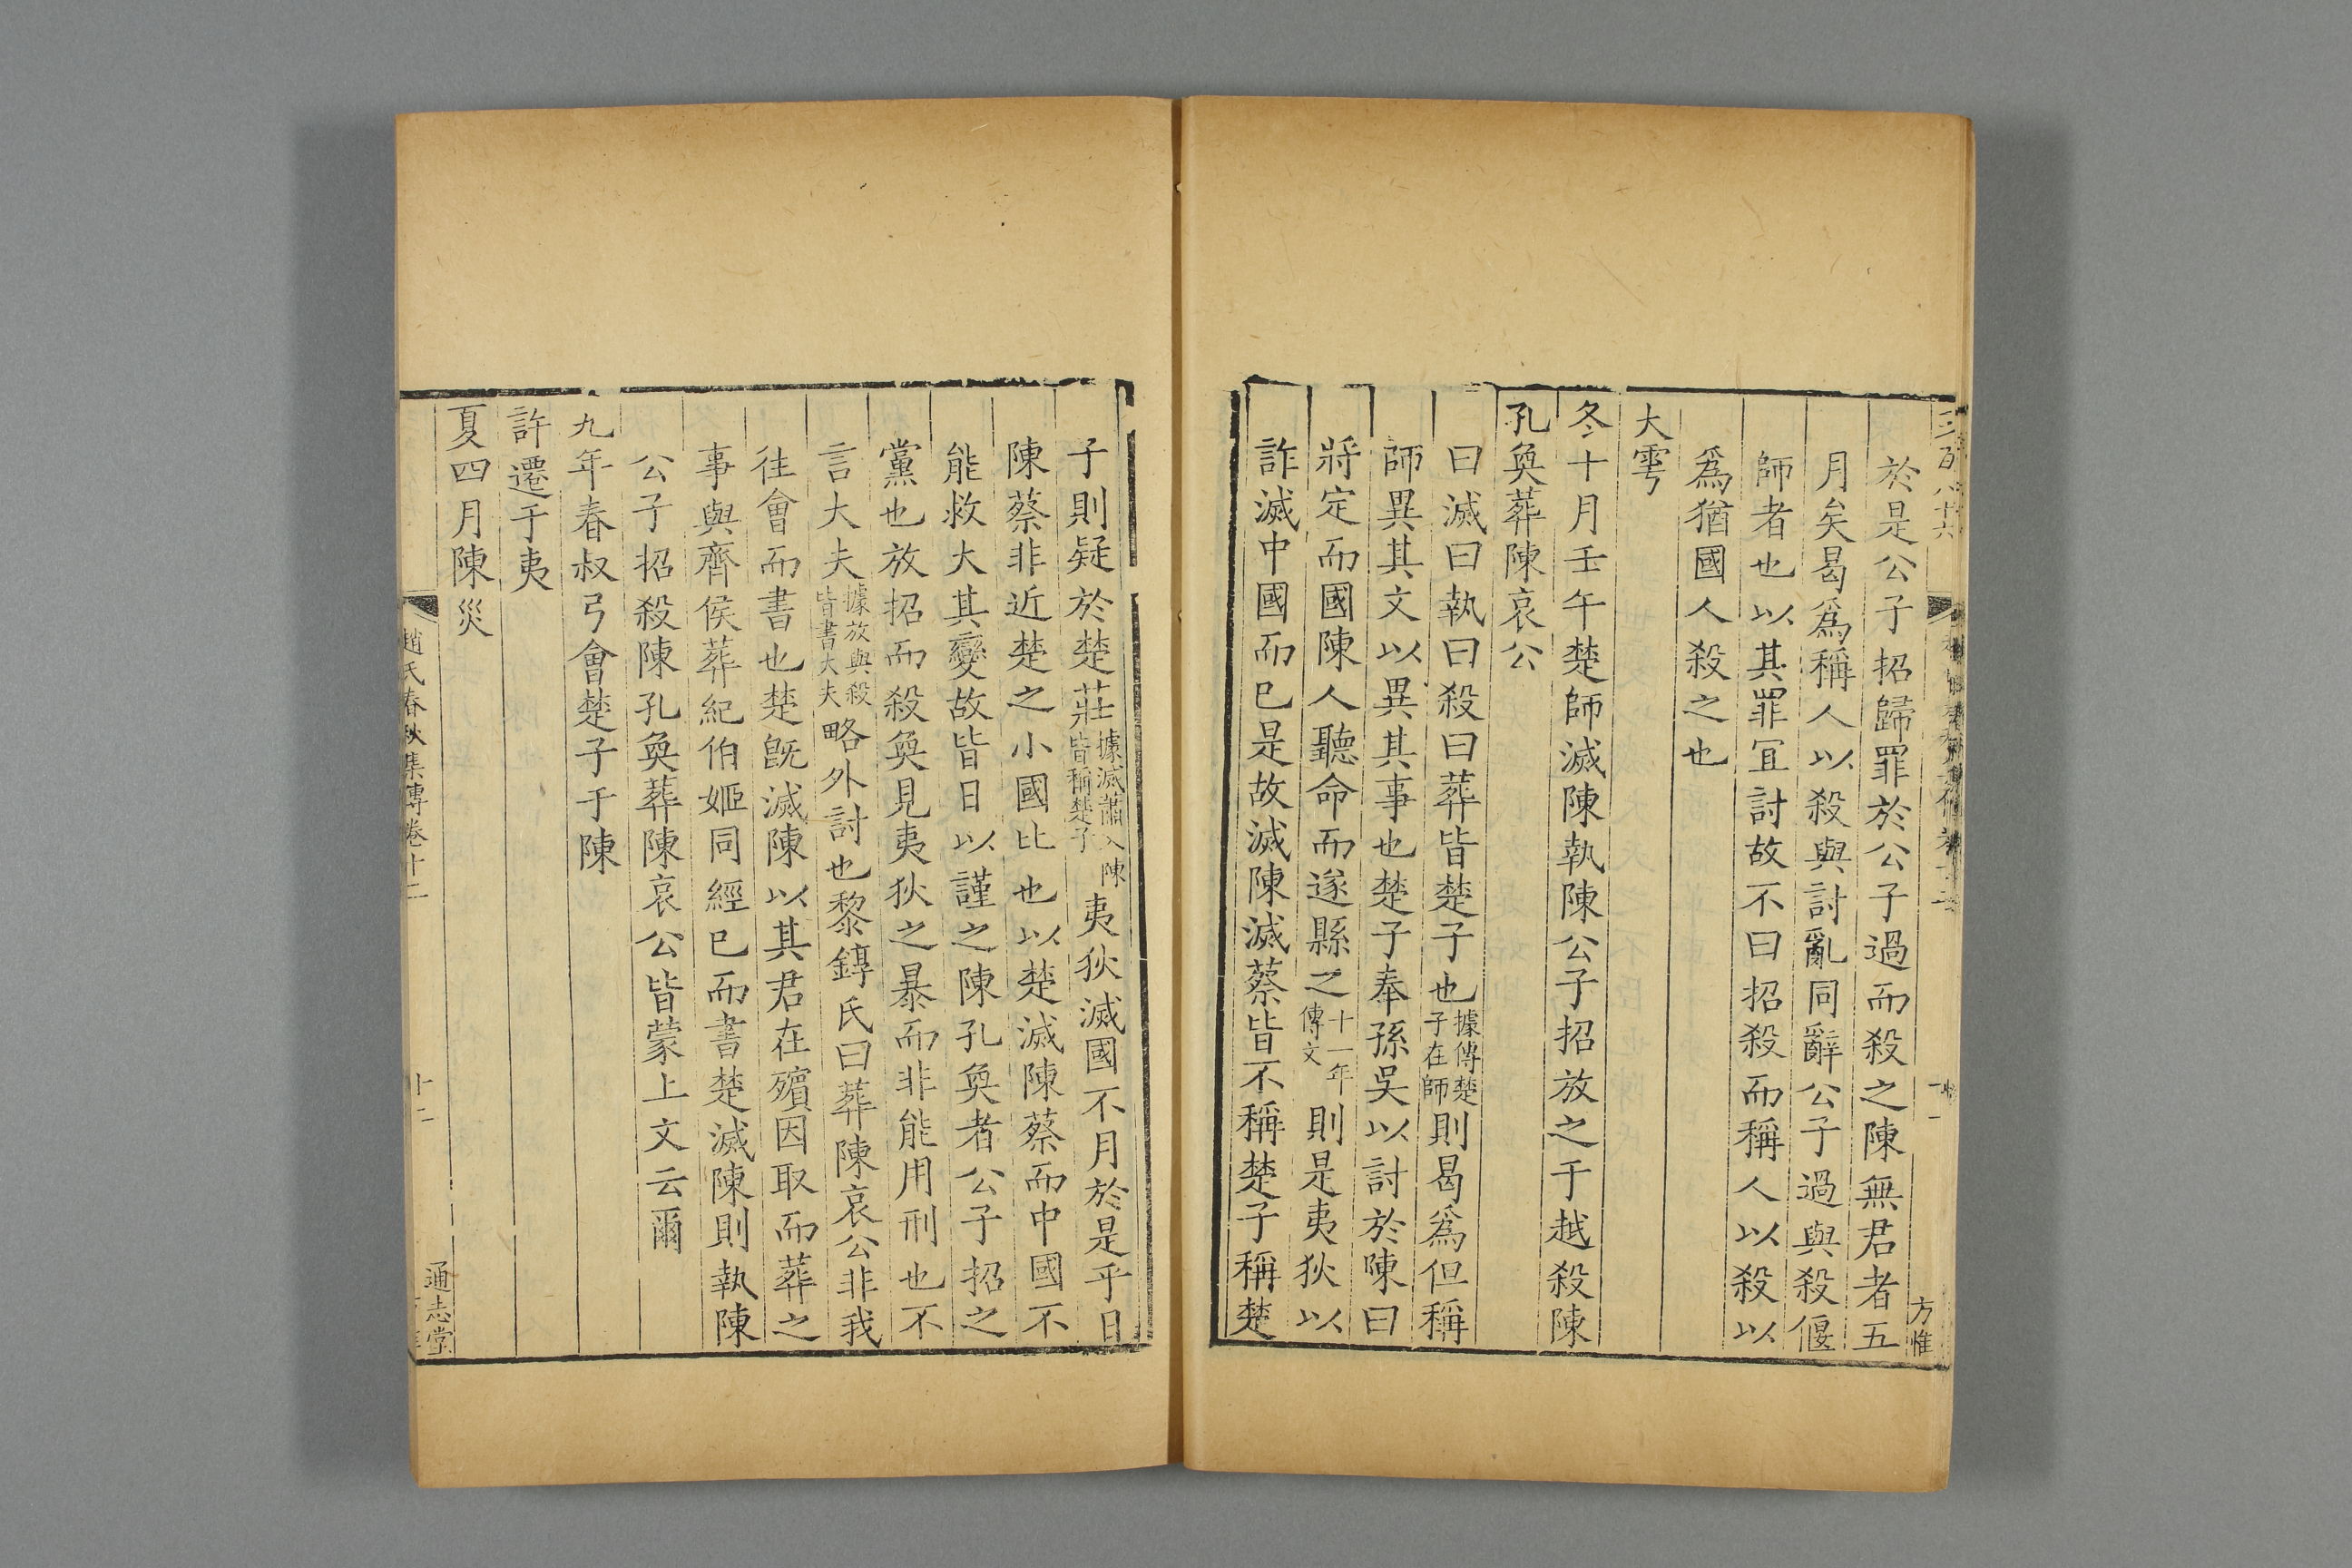 於是公子招歸罪於公子過而殺之陳無君者五
月矣曷爲稱人以殺與討亂同辭公子過與殺偃
師者也以其罪宜討故不曰招殺而稱人以殺以
爲猶國人殺之也
大雩
冬十月壬午楚師滅陳執陳公子招放之于越殺陳
孔奐葬陳哀公
曰滅曰執曰殺曰葬皆楚子也據傳楚子在師則曷爲但稱
師異其文以異其事也楚子奉孫吳以討於陳曰
將定而國陳人聽命而遂縣之十一年傳文則是夷狄以
詐滅中國而已是故滅陳滅蔡皆不稱楚子稱楚
方惟
子則疑於楚莊據滅蕭入陳皆稱楚子夷狄滅國不月於是乎日
陳蔡非近楚之小國比也以楚滅陳蔡而中國不
能救大其變故皆日以謹之陳孔奐者公子招之
黨也放招而殺奐見夷狄之暴而非能用刑也不
言大夫據放與殺皆書大夫略外討也黎錞氏曰葬陳哀公非我
往會而書也楚旣滅陳以其君在殯因取而葬之
事與齊侯葬紀伯姬同經已而書楚滅陳則執陳
公子招殺陳孔奐葬陳哀公皆蒙上文云爾
九年春叔弓會楚子于陳
許遷于夷
夏四月陳災
趙氏春秋集傳卷十二
十二
通志堂